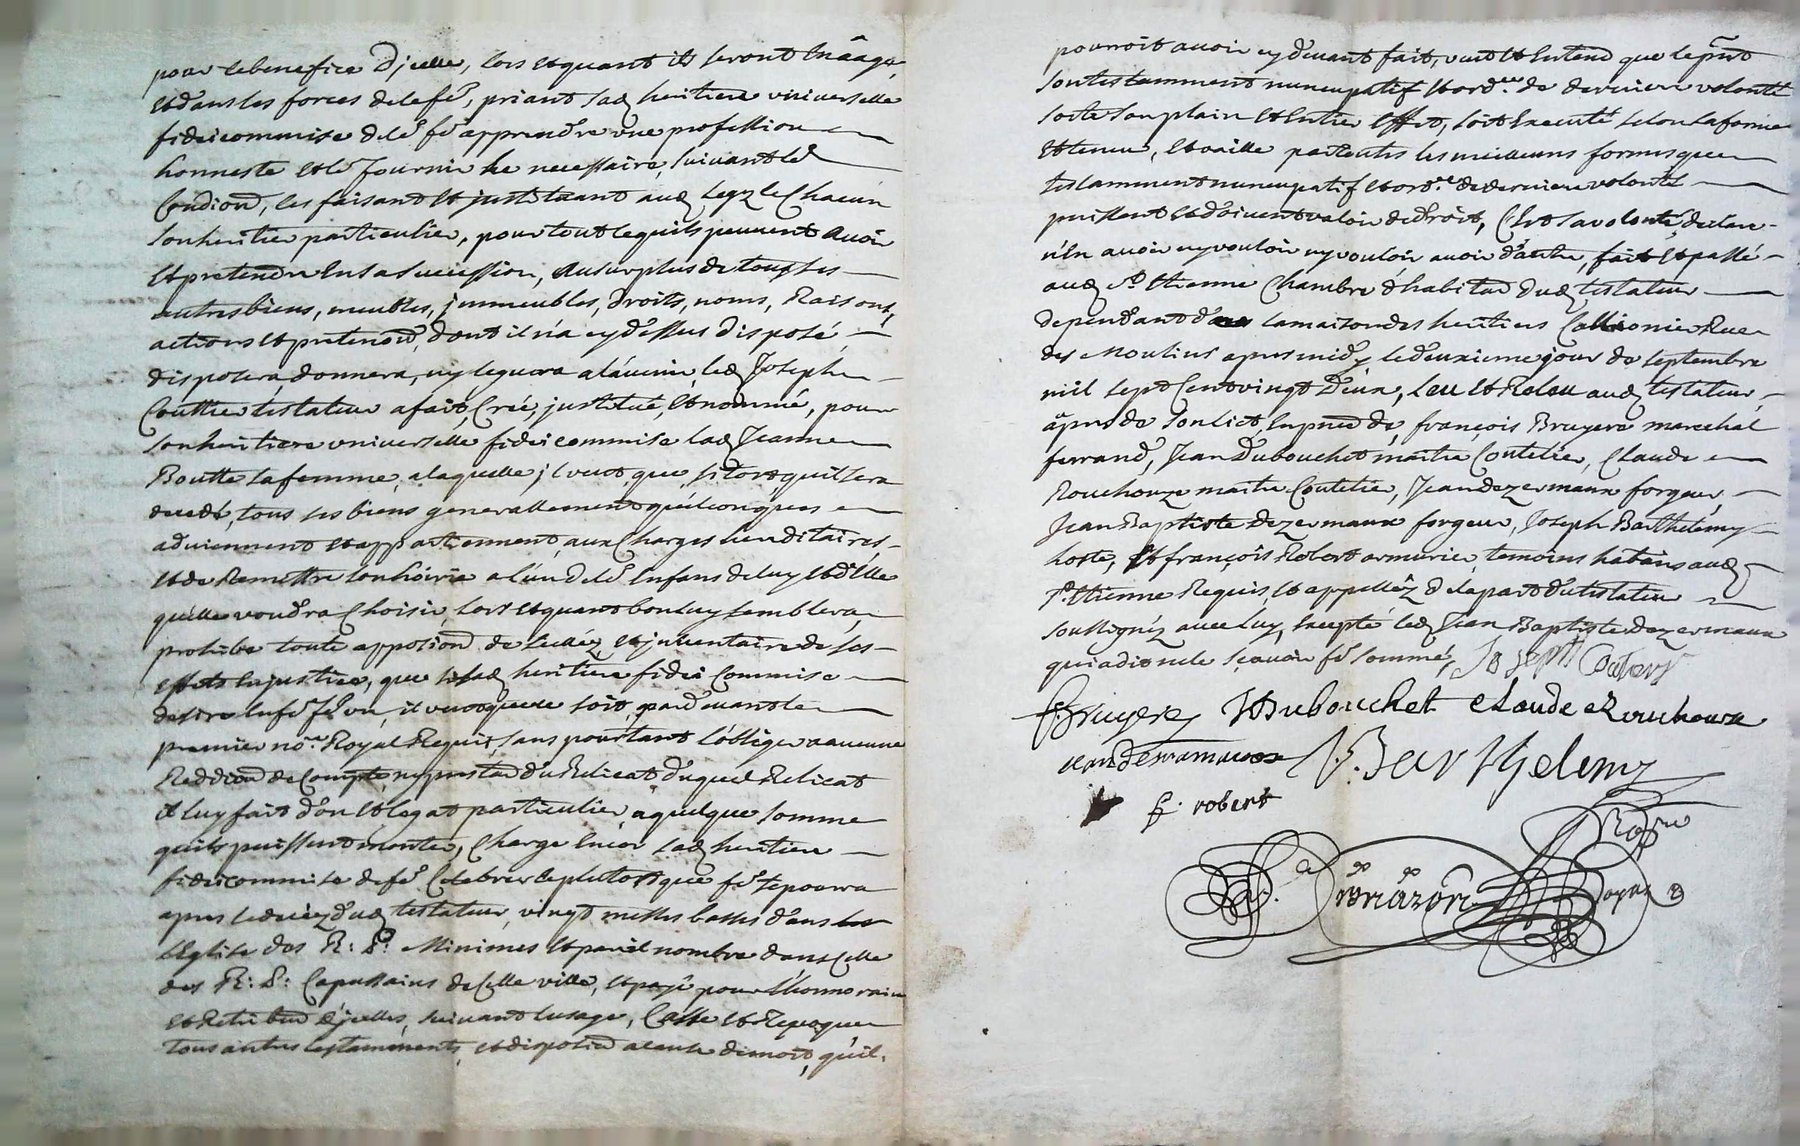 pour le benefice d'jcelle, lors et quant ils seront en aage,
et dans les forces de le fe.^re, priant lad heritiere vniverselle
fideicommise de le^s fe^re apprendre vne profession
honneste et le^s fournir le necessaire, suivant le^r
Condiond, les faisant et justituant aud legz le Chacun
son heritier particulier, pour tout ce quils peuvent avoir
et pretendre en sa succession, au surplus de tous ses
autres biens, meubles, jmmeubles, droits, noms, Raisons,
actions et pretenon^s, dont il n'a cy dessus disposé,
disposera, donnera, ny leguera a l'avenir, led Joseph
Couttier testateur a fait, Créé, justitué, et nommé, pour
son heritiere vniverselle fideicommise lad Jeanne
Boutte sa femme, a laquelle jl veut, que, sitost quil sera
decedé, tous ses biens generallement quelconques
adviennent et appartiennent, aux Charges hereditaires,
et de Remettre son hoirie a l'un de le^s Enfans de luy et d'Elle
quelle voudra Choisir, lors et quant bon luy semblera,
prohibe toute apposiond de sceléz et jnventaire de ses
effets en justice, que si lad heritiere fidei Commise
desire en fe^re f^re vn, il veut que ce soit pard'evant le
premier no^re Royal Requis, sans pourtant l'obliger a aucune
Reddiond de Compte, ny prestaond du Relicat, duquel Relicat
Il luy fait d'on et legat particulier, a quelque somme
quils puissent monter, Charge encor lad heritiere
fideicommise de fe^re Celebrer le plutost que f^re se pourra
apres le decez dud testateur, vingt messes basses dans
l'Eglise des R: P: Minimes et pareil nombre dans Celle
des R: P: Capussains de Cette ville, et payé pour l'honnoraire
et Retribuond d'jcelles, suivant lusage, Casse et Revoque
tous autres testamments, et disposiond a cause de mort, quil
pourroit avoir cy d'evant fait, veut et entend que le p^nt
son testamment nuncupatif et ord.^ce de derniere volonté
sorte son plain et entier effet, soit executé selon sa forme
et teneur, et vaille par toutes les meilleures formes que
testamment nuncupatif et ord.^ce de derniere volonté
puissent et d'oivent valoir de Droit, C'est sa volonté, declare
n'en avoir ny vouloir ny vouloir avoir d'autre, fait et passé
aud S^t Etienne Chambre d'habitaond dud testateur
dependant d'e la maison des heritiers Callionier Rue
des Moulins apres midy le d'euxieme jour de septembre
mil sept Cent vingt d'eux, Leu et Releu aud testateur,
apres de son lict, En p^nce de françois Bruyere marechal
ferrand, Jean Dubouchet maitre Coutelier, Claude
Rouchouze maitre Coutelier, Jean dezermaux forgeur,
Jean Baptiste dezermaux forgeur, Joseph Barthelemy
hoste, et françois Robert armurier, temoins habitans aud
S^t Etienne Requis et appelléz de la part du testateur
soussignéz avec luy, Excepté led Jean Baptiste dezermaux
qui a dit ne le sçavoir f^re sommé, Joseph Coutier
f. Bruyere J Dubouchet Claude Rouchouze
Jean Desarmaux J. Barthelemy
f. robert
no^re
Royal